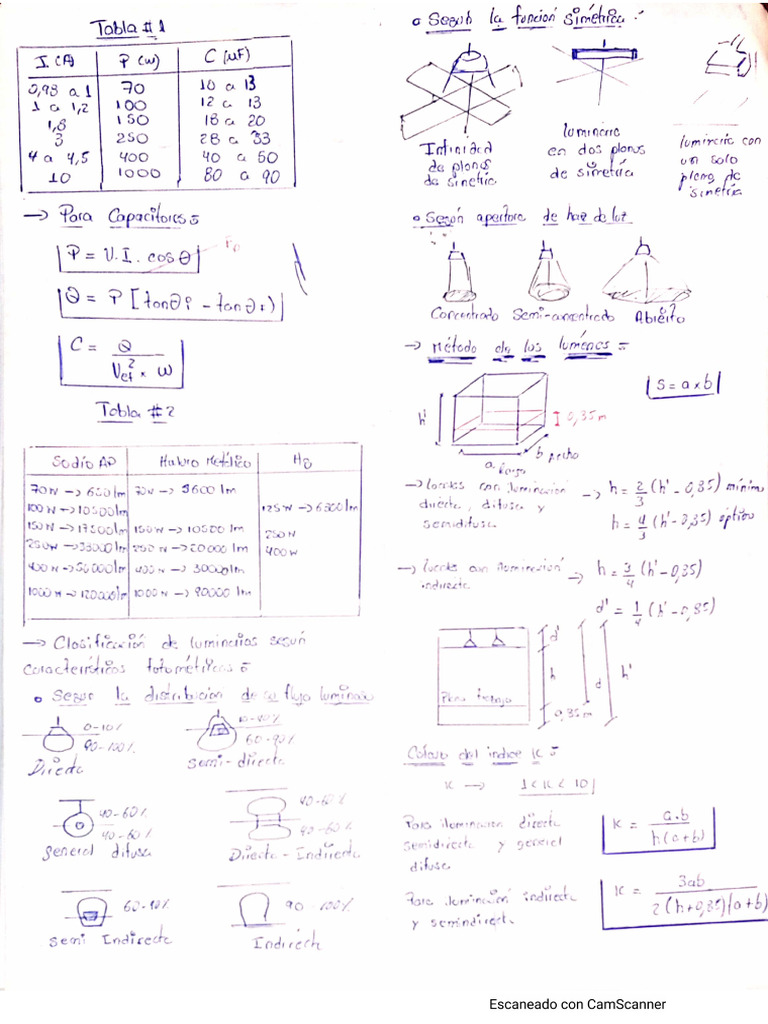 Tabla #1
I (A) P (w) C (µF)
0,98 a 1 70 10 a 13
1 a 1,2 100 12 a 13
1,8 150 18 a 20
3 250 28 a 33
4 a 4,5 400 40 a 50
10 1000 80 a 90
→ Para Capacitores =
P = V. I. cos θ
Q = P [tan θi - tan θf)
C = Q / Vef² × w
Tabla #2
Sodio AP Haluro Metálico Hg
70w → 6500 lm 70w → 5600 lm
100w → 10500 lm 125w → 6300 lm
150w → 17500 lm 150w → 10500 lm 250w
250w → 33000 lm 250w → 20000 lm 400w
400w → 56000 lm 400w → 30000 lm
1000w → 120000 lm 1000w → 90000 lm
→ Clasificación de luminarias según
características fotométricas =
• Segun la distribucion de su flujo luminoso
0-10%
90-100%
Directa
10-40%
60-90%
Semi-directa
40-60%
40-60%
general difusa
40-60%
40-60%
Directa - Indirecta
60-90%
Semi Indirecta
90-100%
Indirecta
• Según la función Simétrica :
Infinidad
de planos
de simetria
luminaria
en dos planos
de simetría
luminaria con
un solo
plano de
simetría
• Según apertura de haz de luz
Concentrado Semi-concentrado Abierto
→ Método de los lumenes =
S = a × b
h'
0,35 m
a largo
b ancho
→ locales con iluminación
directa, difusa y
semidifusa
→ h = 2/3 (h' - 0,85) mínimo
h = 4/3 (h' - 0,85) óptimo
→ locales con iluminación
indirecta
→ h = 3/4 (h' - 0,85)
d' = 1/4 (h' - 0,85)
d'
h
d
h'
Plano trabajo
0,85 m
Calculo del indice K =
K → 1 < K < 10
Para iluminacion directa
semidirecta y general
difusa
K = a.b / h(a+b)
Para iluminación indirecta
y semindirecta
K = 3ab / 2(h+0,85)(a+b)
Escaneado con CamScanner